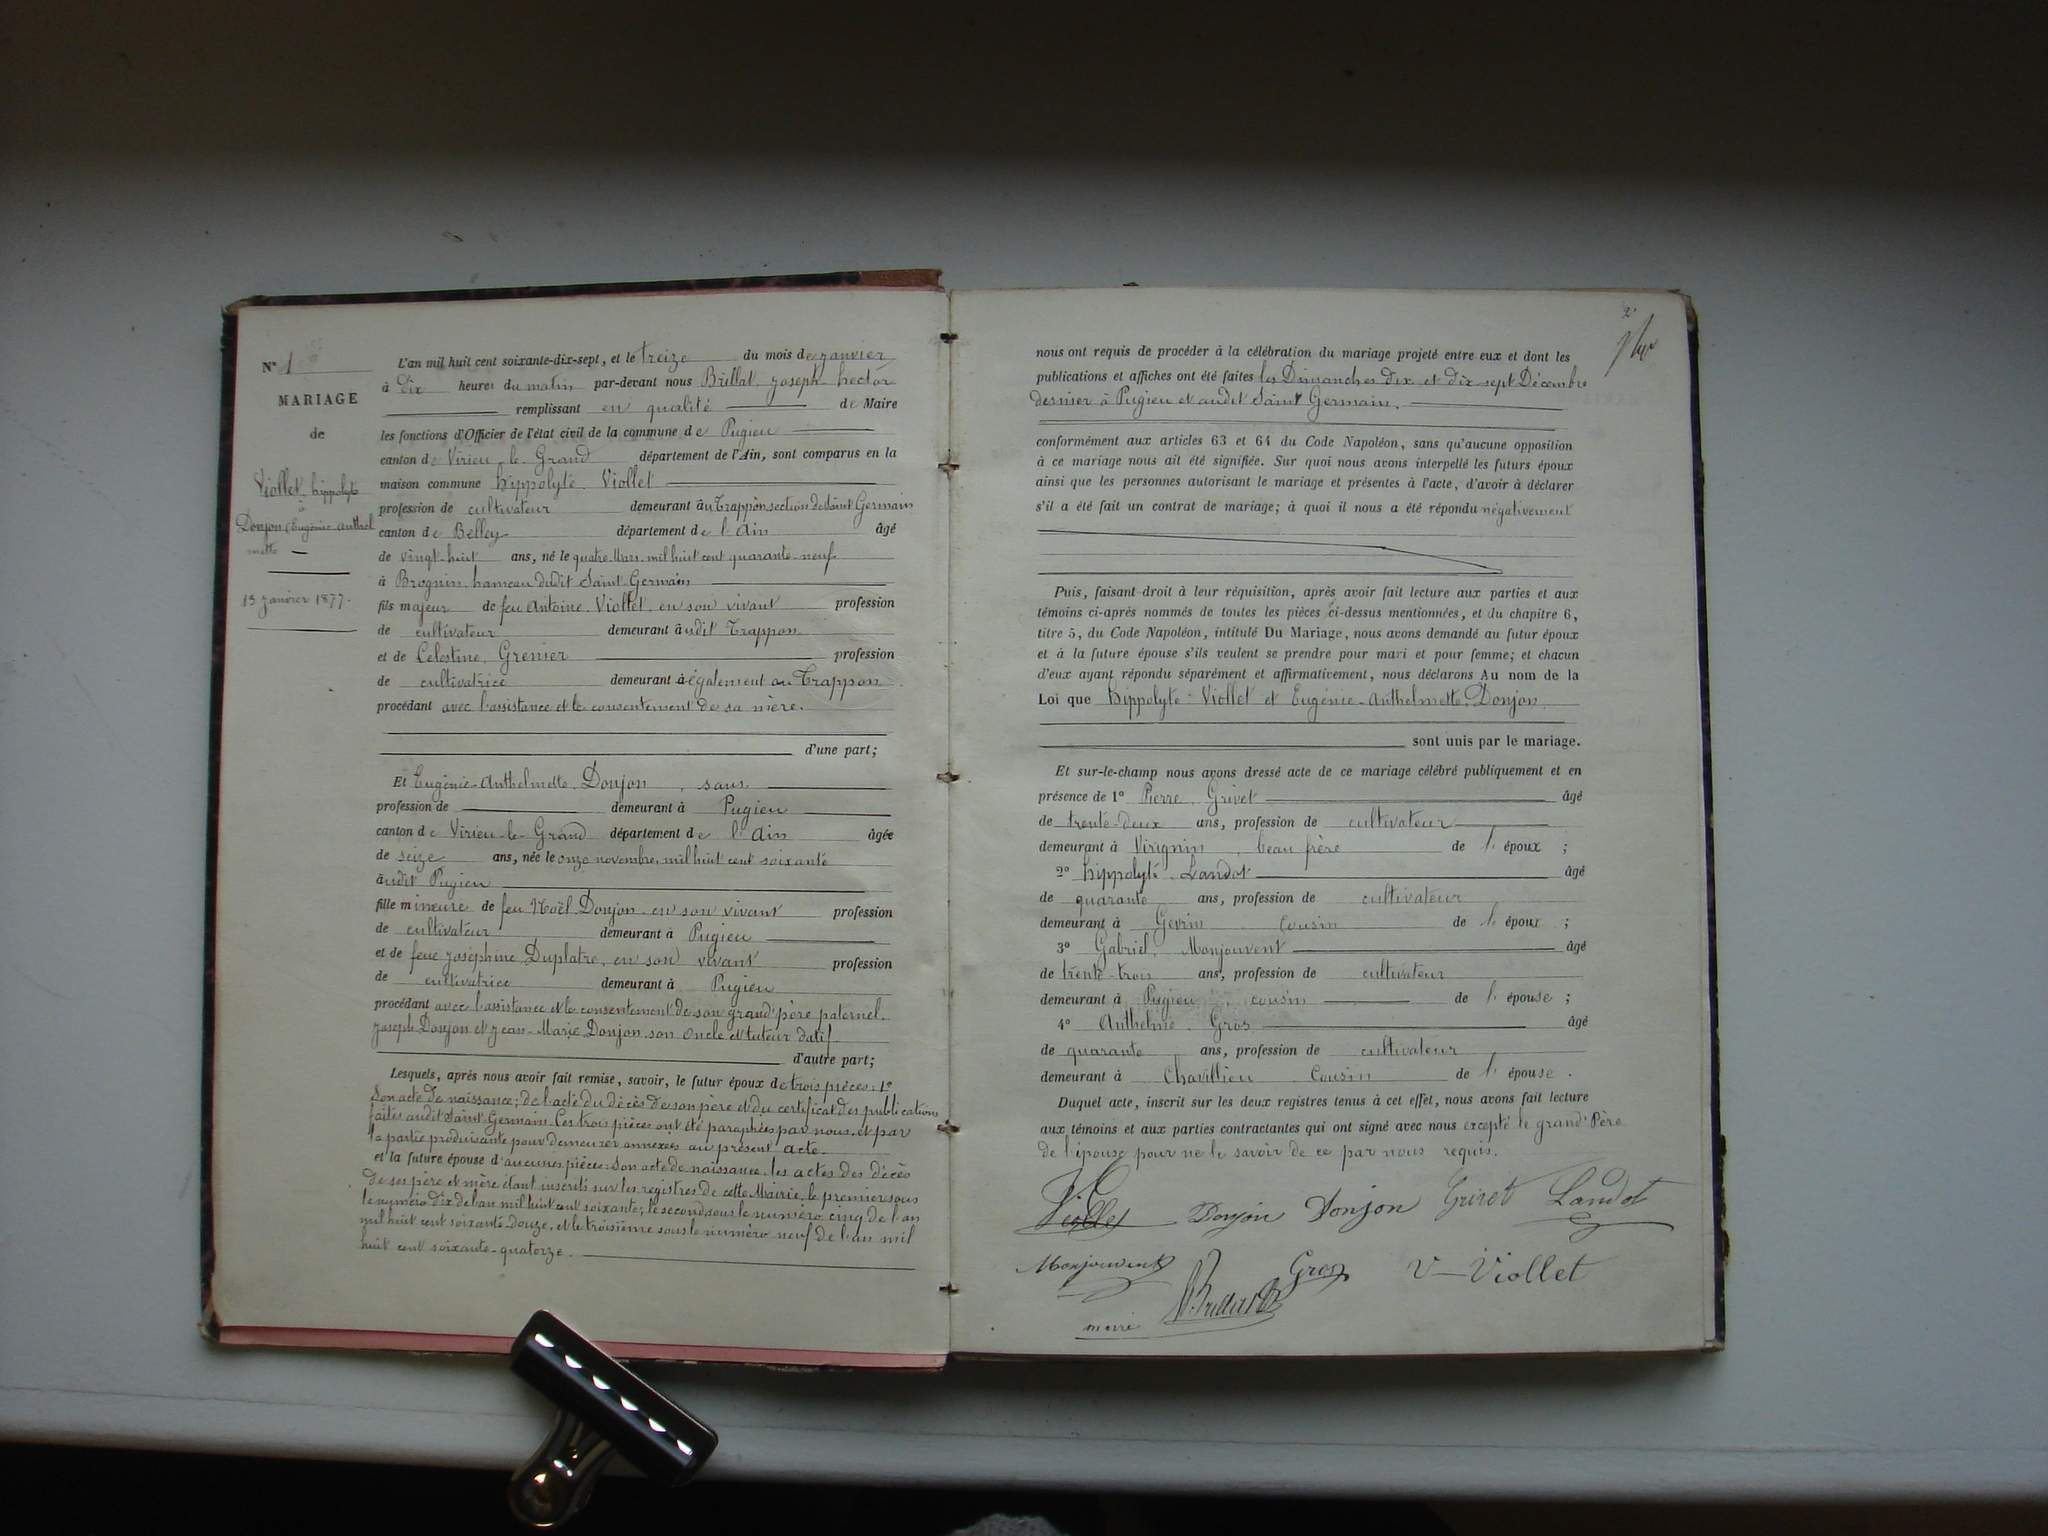 N° 1
MARIAGE
de
Viollet, hippolyte
à
Donjon Eugénie-Anthel
mette
13 janvier 1877.
L'an mil huit cent soixante-dix-sept, et le treize du mois de janvier
à dix heures du matin par-devant nous Brillat, Joseph hector
remplissant en qualité de Maire
les fonctions d'Officier de l'état civil de la commune de Pugieu
canton de Virieu-le-Grand département de l'Ain, sont comparus en la
maison commune hippolyte Viollet
profession de cultivateur demeurant au Trappon section de Saint Germain
canton de Belley département de l'Ain âgé
de vingt-huit ans, né le quatre Mars mil huit cent quarante-neuf
à Brognin hameau dudit Saint-Germain
fils majeur de feu Antoine Viollet, en son vivant profession
de cultivateur demeurant audit Trappon
et de Célestine Grenier profession
de cultivatrice demeurant à également au Trappon
procédant avec l'assistance et le consentement de sa mère.
d'une part;
Et Eugénie-Anthelmette Donjon, sans
profession de demeurant à Pugieu
canton de Virieu-le-Grand département de l'Ain âgée
de seize ans, née le onze novembre, mil huit cent soixante
audit Pugieu
fille mineure de feu Noël Donjon, en son vivant profession
de cultivateur demeurant à Pugieu
et de feue Joséphine Duplatre, en son vivant profession
de cultivatrice demeurant à Pugieu
procédant avec l'assistance et le consentement de son grand'père paternel
Joseph Donjon et Jean-Marie Donjon son oncle et tuteur datif
d'autre part;
Lesquels, après nous avoir fait remise, savoir, le futur époux de trois pièces: 1°
Son acte de naissance; de l'acte du décès de son père et du certificat des publications
faites audit Saint-Germain. Ces trois pièces ont été paraphées par nous, et par
la partie produisante pour demeurer annexées au présent acte.
et la future épouse d'aucunes pièces. Son acte de naissance, les actes des décès
de ses père et mère étant inscrits sur les registres de cette Mairie, le premier sous
le numéro dix de l'an mil huit cent soixante; le second sous le numéro cinq de l'an
mil huit cent soixante-douze, et le troisième sous le numéro neuf de l'an mil
huit cent soixante-quatorze.
2
nous ont requis de procéder à la célébration du mariage projeté entre eux et dont les
publications et affiches ont été faites les Dimanches dix et dix sept Décembre
dernier à Pugieu et audit Saint Germain.
conformément aux articles 63 et 64 du Code Napoléon, sans qu'aucune opposition
à ce mariage nous ait été signifiée. Sur quoi nous avons interpellé les futurs époux
ainsi que les personnes autorisant le mariage et présentes à l'acte, d'avoir à déclarer
s'il a été fait un contrat de mariage; à quoi il nous a été répondu négativement
Puis, faisant-droit à leur réquisition, après avoir fait lecture aux parties et aux
témoins ci-après nommés de toutes les pièces ci-dessus mentionnées, et du chapitre 6,
titre 5, du Code Napoléon, intitulé Du Mariage, nous avons demandé au futur époux
et à la future épouse s'ils veulent se prendre pour mari et pour femme; et chacun
d'eux ayant répondu séparément et affirmativement, nous déclarons Au nom de la
Loi que hippolyte Viollet et Eugénie-Anthelmette Donjon
sont unis par le mariage.
Et sur-le-champ nous avons dressé acte de ce mariage célébré publiquement et en
présence de 1° Pierre Grivet âgé
de trente-deux ans, profession de cultivateur
demeurant à Virignin, beau frère de l'époux ;
2° hippolyte Landot âgé
de quarante ans, profession de cultivateur
demeurant à Gevrin cousin de l'époux ;
3° Gabriel Monjouvent âgé
de trente-trois ans, profession de cultivateur
demeurant à Pugieu, cousin de l'épouse ;
4° Anthelme Gros âgé
de quarante ans, profession de cultivateur
demeurant à Chavillieu Cousin de l'épouse.
Duquel acte, inscrit sur les deux registres tenus à cet effet, nous avons fait lecture
aux témoins et aux parties contractantes qui ont signé avec nous excepté le grand'Père
de l'épouse pour ne le savoir de ce par nous requis.
Viollet Donjon Donjon Grivet Landot
Monjouvent Gros V-Viollet
maire Brillat